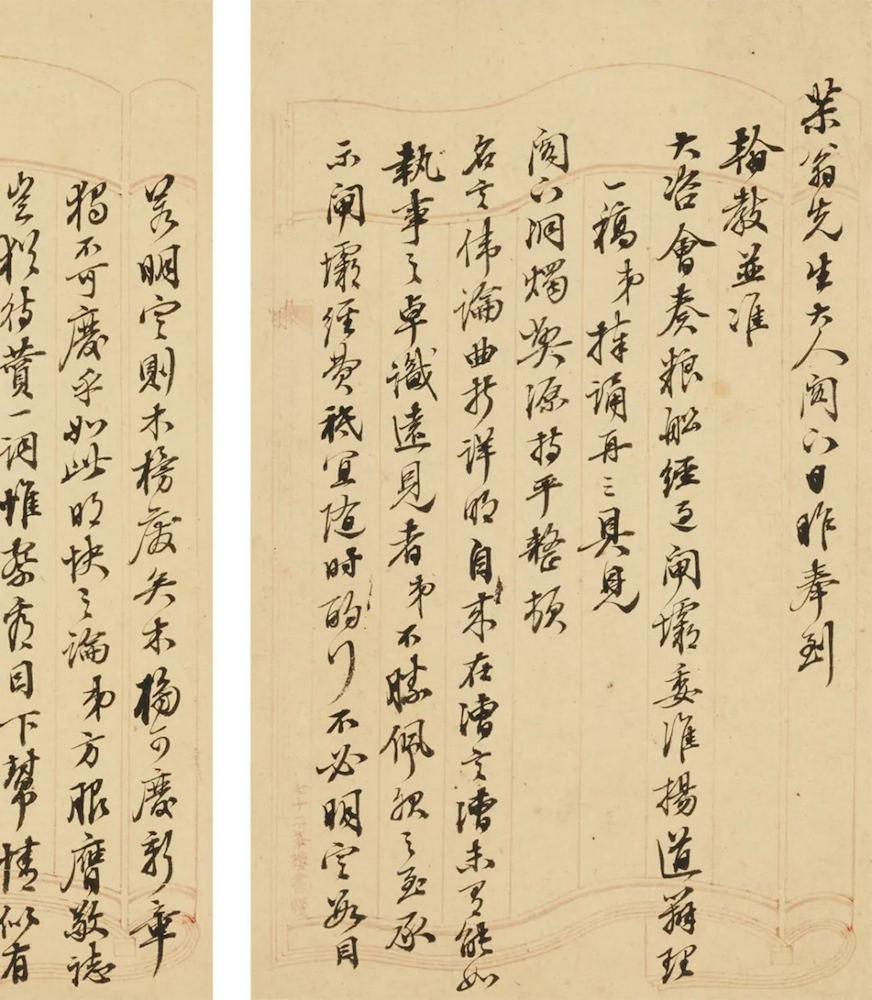 翁先生大人閣下日昨奉到
翰教並准
大咨會奏粮船經過閘壩委淮揚道辦理
一稿弟捧誦再三具見
閣下洞燭獘源持平整頓
名言偉論曲折詳明自來在漕言漕未有能如
執事之卓識遠見者弟不勝佩服之至承
示閘壩經費秪宜隨時酌行不必明定數目
若明定則木榜廢矣木榜可廢新章
獨不可廢乎如此明快之論弟方服膺敬誌
豈猶待贊一詞惟察看目下幫情似有